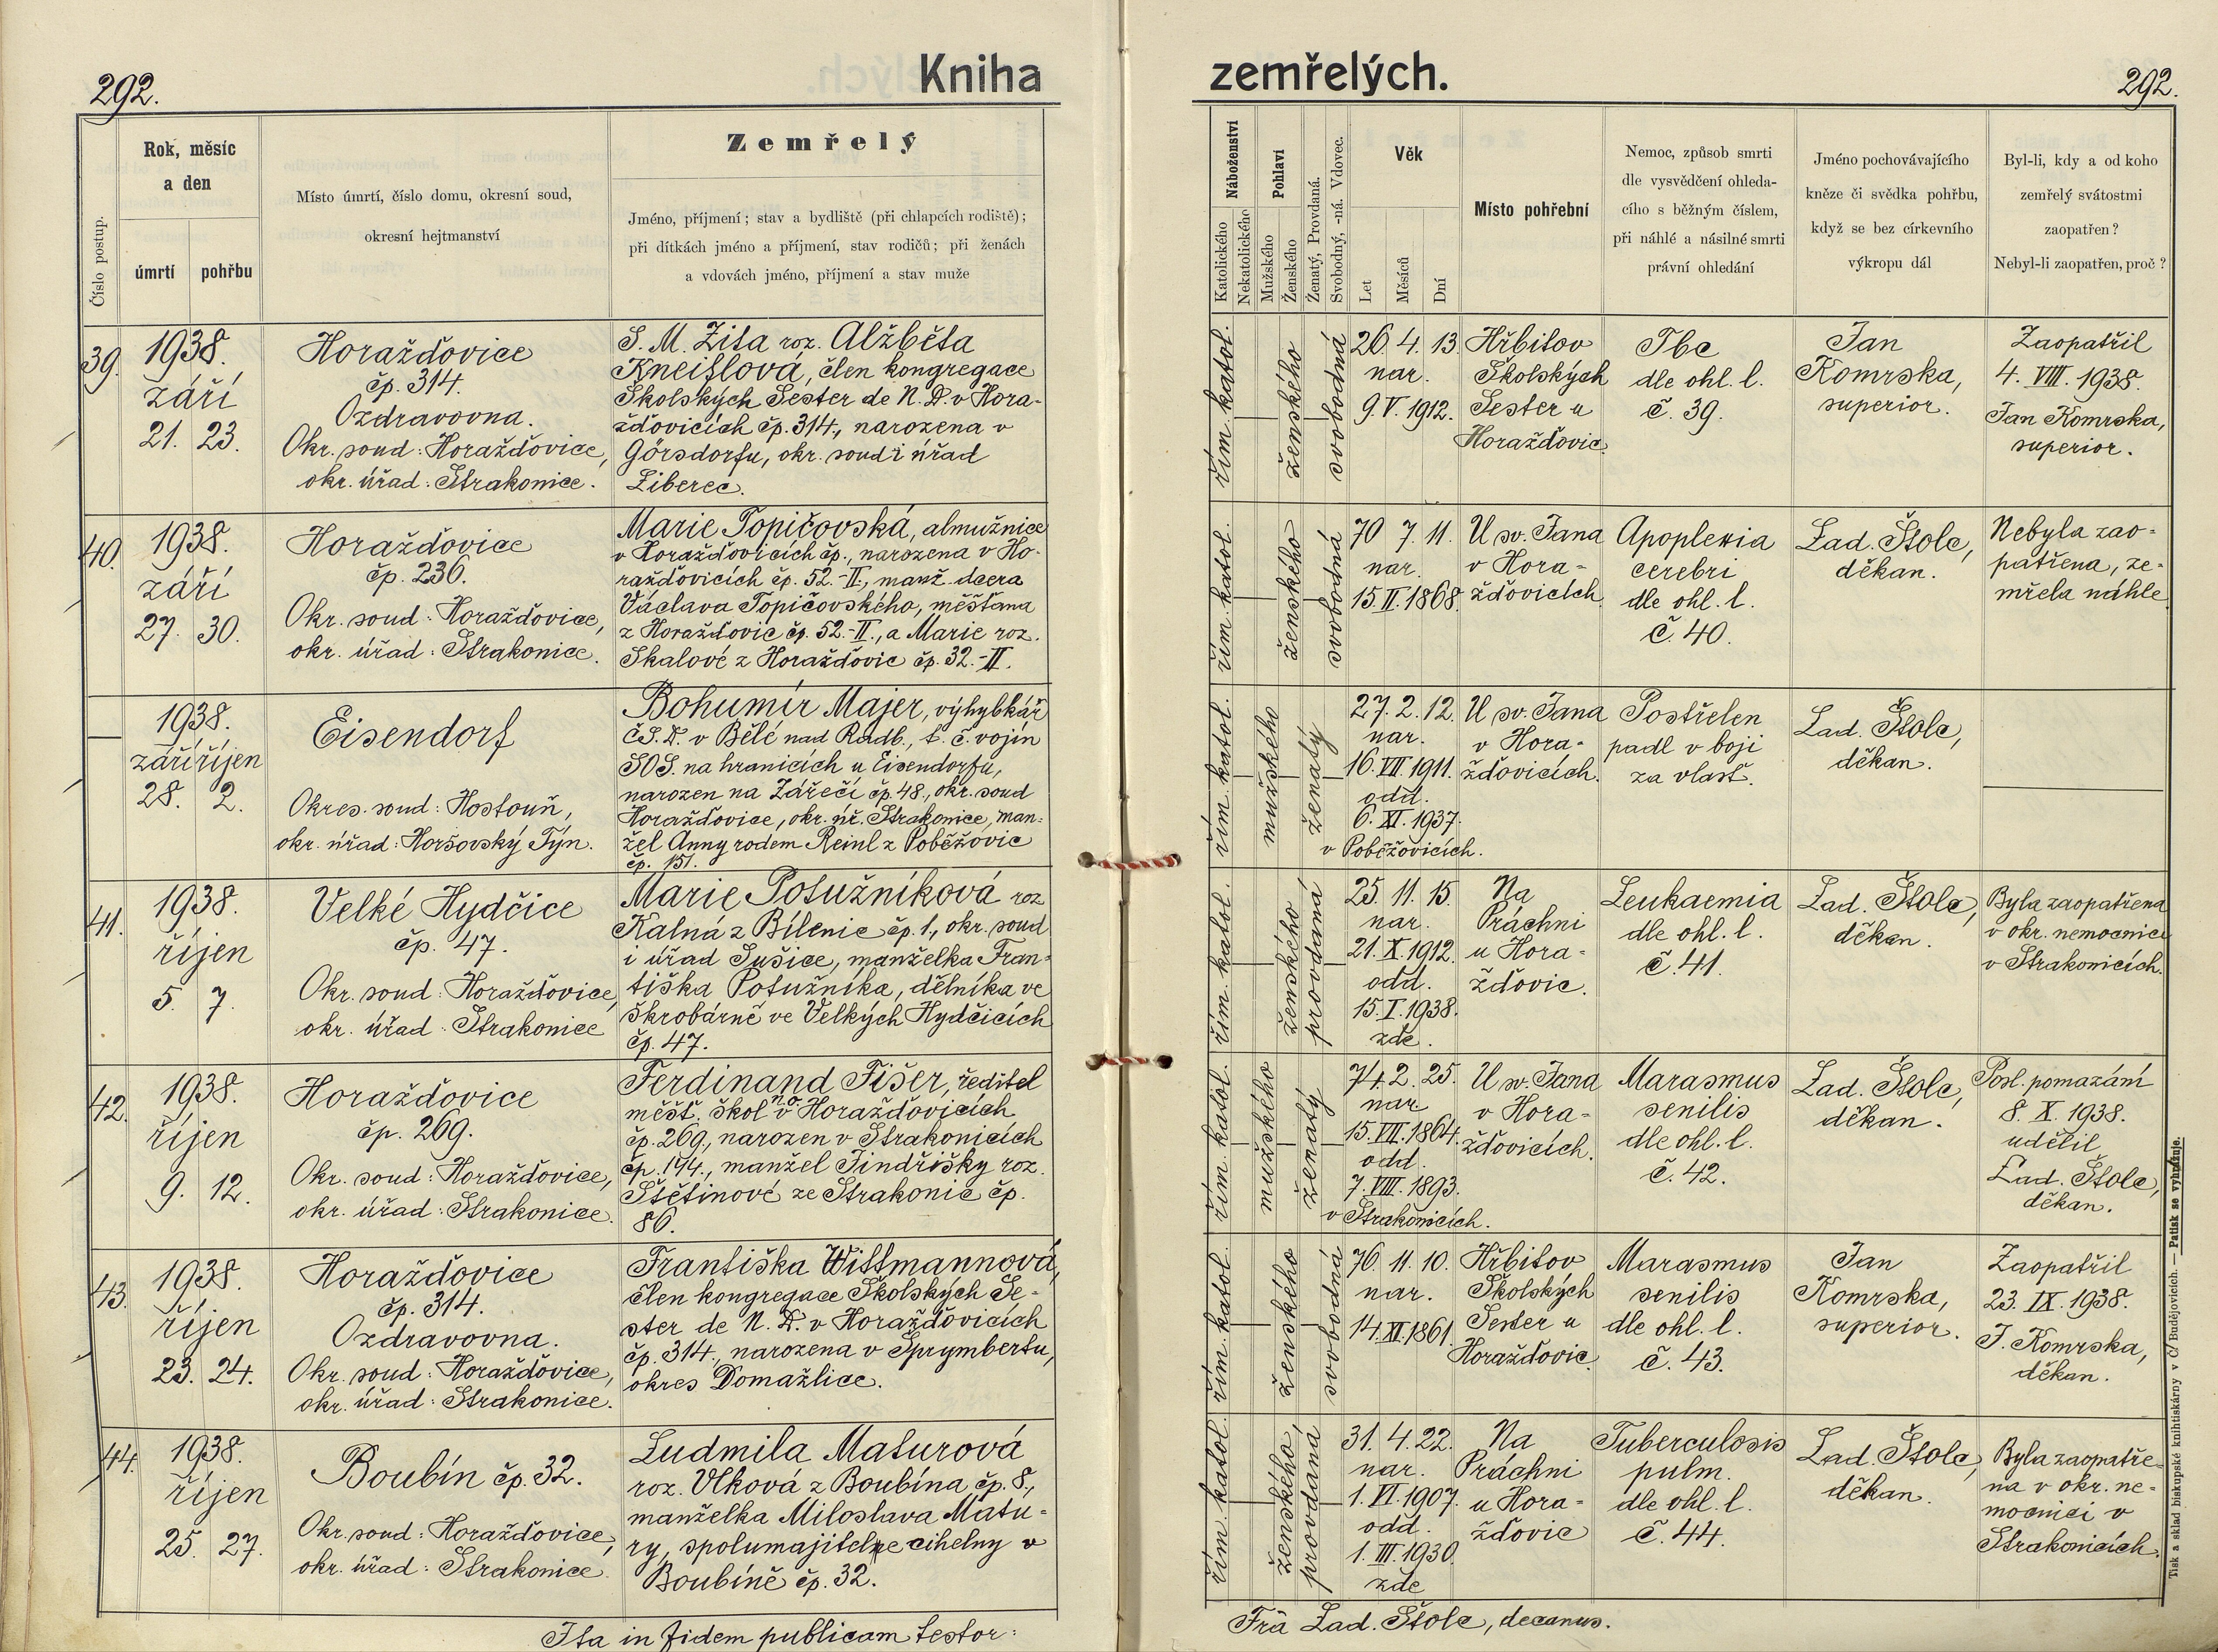 292.
Kniha
Číslo postup.
Rok, měsíc
a den
úmrtí
pohřbu
Místo úmrtí, číslo domu, okresní soud,
okresní hejtmanství
Zemřelý
Jméno, příjmení; stav a bydliště (při chlapcích rodiště);
při dítkách jméno a příjmení, stav rodičů; při ženách
a vdovách jméno, příjmení a stav muže
39.
1938.
září
21. 23.
Horažďovice
čp. 314.
Ozdravovna.
Okr. soud: Horažďovice,
okr. úřad: Strakonice.
S. M. Zita roz. Alžběta
Kneislová, člen kongregace
Školských Sester de N. D. v Hora-
žďovicích čp. 314., narozena v
Görsdorfu, okr. soud i úřad
Liberec.
40.
1938.
září
27. 30.
Horažďovice
čp. 236.
Okr. soud: Horažďovice,
okr. úřad: Strakonice.
Marie Topičovská, almužnice
v Horažďovicích čp., narozena v Ho-
ražďovicích čp. 52.-II., manž. dcera
Václava Topičovského, měšťana
z Horažďovic čp. 52.-II., a Marie roz.
Skalové z Horažďovic čp. 32.-II.
1938.
září říjen
28. 2.
Eisendorf
Okres. soud: Hostouň,
okr. úřad: Horšovský Týn.
Bohumír Majer, výhybkář
ČS.D. v Bělé nad Radb., t. č. vojín
SOS. na hranicích u Eisendorfu,
narozen na Zářečí čp. 48., okr. soud
Horažďovice, okr. úř. Strakonice, man-
žel Anny rodem Reinl z Poběžovic
čp. 151.
41.
1938.
říjen
5. 7.
Velké Hydčice
čp. 47.
Okr. soud: Horažďovice,
okr. úřad: Strakonice
Marie Potužníková roz
Kalná z Bílenic čp. 1., okr. soud
i úřad Sušice, manželka Fran-
tiška Potužníka, dělníka ve
škrobárně ve Velkých Hydčicích
čp. 47.
42.
1938.
říjen
9. 12.
Horažďovice
čp. 269.
Okr. soud: Horažďovice,
okr. úřad: Strakonice.
Ferdinand Fišer, ředitel
měšť. škol na v Horažďovicích
čp. 269., narozen v Strakonicích
čp. 144., manžel Jindřišky roz.
Štětinové ze Strakonic čp.
86.
43.
1938.
říjen
23. 24.
Horažďovice
čp. 314.
Ozdravovna.
Okr. soud: Horažďovice,
okr. úřad: Strakonice.
Františka Wittmannová,
člen kongregace Školských Se-
ster de N. D. v Horažďovicích
čp. 314., narozena v Sprymbertu,
okres Domažlice.
44.
1938.
říjen
25. 27.
Boubín čp. 32.
Okr. soud: Horažďovice,
okr. úřad: Strakonice.
Ludmila Maturová
roz. Vlková z Boubína čp. 8.,
manželka Miloslava Matu-
ry, spolumajitele cihelny v
Boubíně čp. 32.
Ita in fidem publicam testor:
zemřelých.
292.
Náboženství
Katolického
Nekatolického
Pohlaví
Mužského
Ženského
Ženatý, Provdaná.
Svobodný, -ná. Vdovec.
Věk
Let
Měsíců
Dní
Místo pohřební
Nemoc, způsob smrti
dle vysvědčení ohleda-
cího s běžným číslem,
při náhlé a násilné smrti
právní ohledání
Jméno pochovávajícího
kněze či svědka pohřbu,
když se bez církevního
výkropu dál
Byl-li, kdy a od koho
zemřelý svátostmi
zaopatřen?
Nebyl-li zaopatřen, proč?
řím. katol.
ženského
svobodná
26. 4. 13.
nar.
9. V. 1912.
Hřbitov
Školských
Sester u
Horažďovic.
Tbc
dle ohl. l.
č. 39.
Jan
Komrska,
superior.
Zaopatřil
4. VIII. 1938.
Jan Komrska,
superior.
řím. katol.
ženského
svobodná
70 7. 11.
nar.
15. II. 1868.
U sv. Jana
v Hora-
žďovicích.
Apoplexia
cerebri
dle ohl. l.
č. 40.
Lad. Štolc,
děkan.
Nebyla zao-
patřena, ze-
mřela náhle
řím. katol.
mužského
ženatý
27. 2. 12.
nar.
16. VII. 1911.
odd.
6. XI. 1937.
v Poběžovicích.
U sv. Jana
v Hora-
žďovicích.
Postřelen
padl v boji
za vlast.
Lad. Štolc,
děkan.
řím. katol.
ženského
provdaná
25. 11. 15.
nar.
21. X. 1912.
odd.
15. I. 1938.
zde.
Na
Práchni
u Hora-
žďovic.
Leukaemia
dle ohl. l.
č. 41.
Lad. Štolc,
děkan.
Byla zaopatřena
v okr. nemocnici
v Strakonicích.
řím. katol.
mužského
ženatý
74. 2. 25.
nar.
15. VII. 1864.
odd.
7. VIII. 1893.
v Strakonicích.
U sv. Jana
v Hora-
žďovicích.
Marasmus
senilis
dle ohl. l.
č. 42.
Lad. Štolc,
děkan.
Posl. pomazání
8. X. 1938.
udělil
Lad. Štolc,
děkan.
řím. katol.
ženského
svobodná
76. 11. 10.
nar.
14. XI. 1861.
Hřbitov
Školských
Sester u
Horažďovic.
Marasmus
senilis
dle ohl. l.
č. 43.
Jan
Komrska,
superior.
Zaopatřil
23. IX. 1938.
J. Komrska,
děkan.
řím. katol.
ženského
provdaná
31. 4. 22.
nar.
1. VI. 1907.
odd.
1. III. 1930.
zde
Na
Práchni
u Hora-
žďovic
Tuberculosis
pulm.
dle ohl. l.
č. 44.
Lad. Štolc,
děkan.
Byla zaopatře-
na v okr. ne-
mocnici v
Strakonicích.
Frä Lad. Štolc, decanus.
Tisk a sklad biskupské knihtiskárny v Č. Budějovicích. — Patisk se vyhražuje.